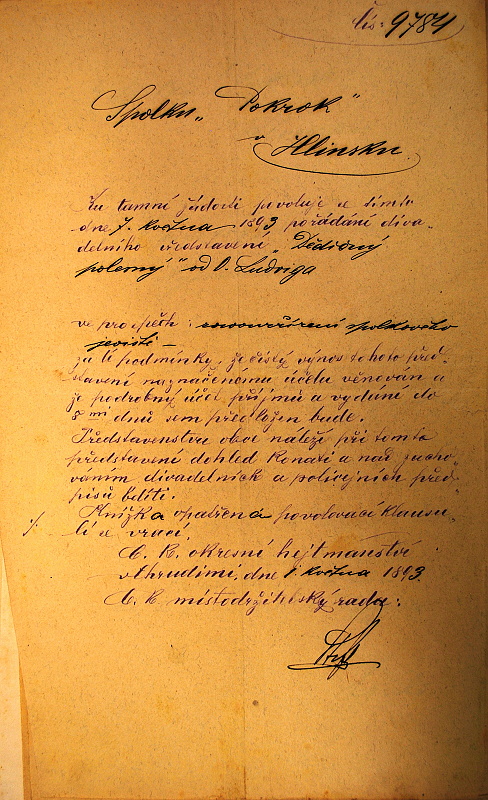 čís: 9784
Spolku „Pokrok“
v
Hlinsku.
Ku tamní žádosti povoluje se tímto
dne 7. května 1893 pořádání diva-
delního představení „Dědičný
polesný“ od O. Ludviga
ve prospěch : spolkového
jeviště –
za té podmínky, že čistý výnos tohoto před-
stavení naznačenému účelu věnován a
že podrobný účet příjmů a vydání do
8 mi dnů sem předložen bude.
Představenstvu obce náleží při tomto
představení dohled konati a nad zacho-
váním divadelních a policejních před-
pisů bdíti.
./. Knížka opatřena povolovací klausu-
lí se vrací.
C. k. okresní hejtmanství
v Chrudimi, dne 1. května 1893.
C. k. místodržitelský rada: